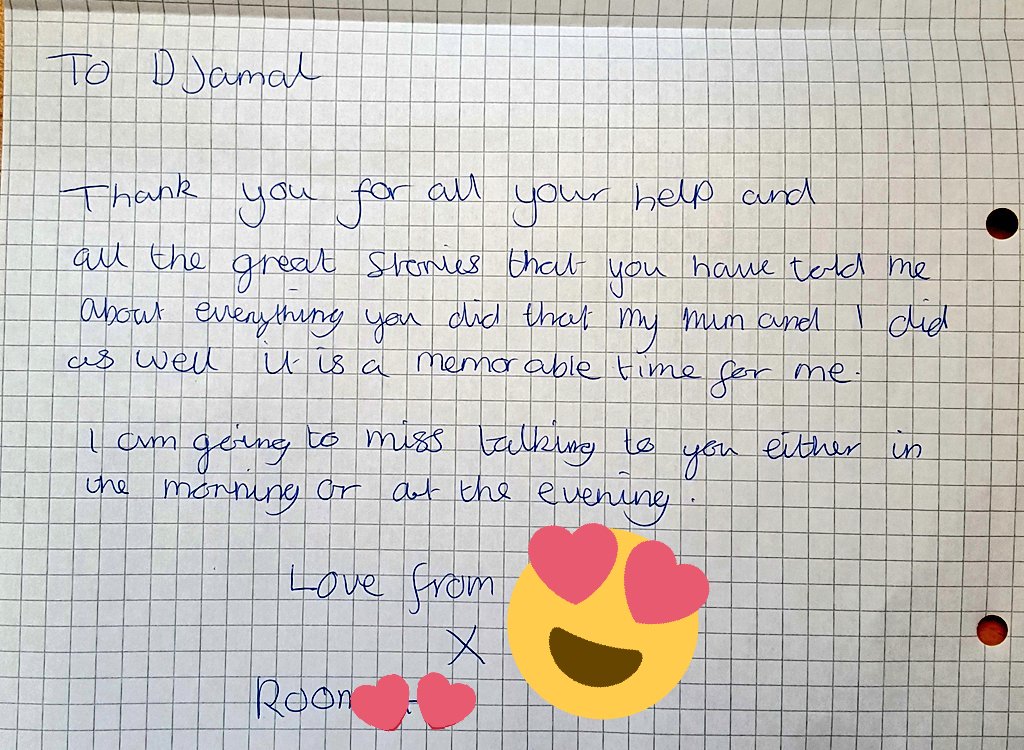 To Djamal
Thank you for all your help and
all the great stories that you have told me
about everything you did that my mum and I did
as well it is a memorable time for me.
I am going to miss talking to you either in
the morning or at the evening.
Love from
X